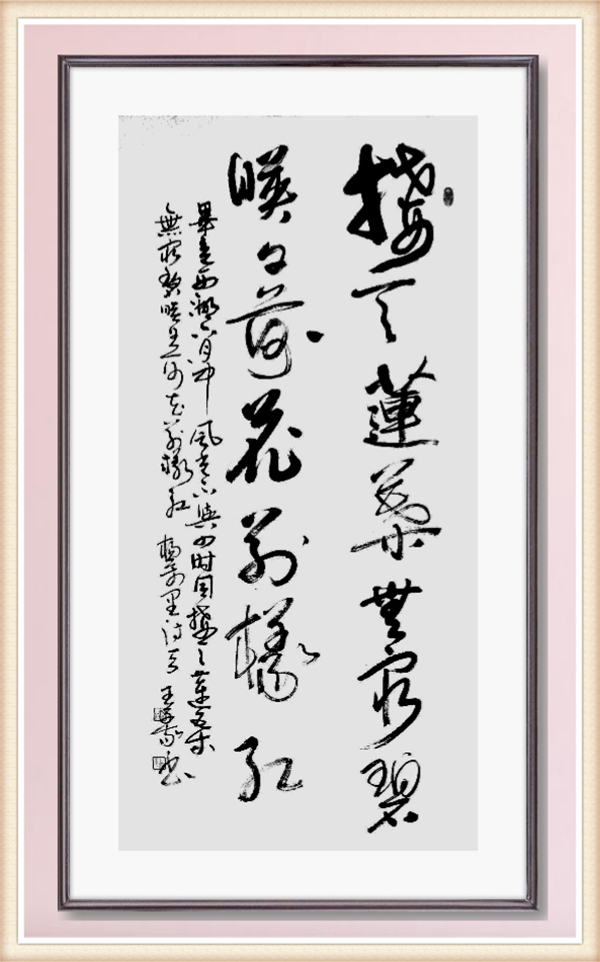 接天蓮葉無窮碧
映日荷花別樣紅
畢竟西湖六月中 風光不與四時同 接天蓮葉
無窮碧映日荷花別樣紅 楊萬里詩